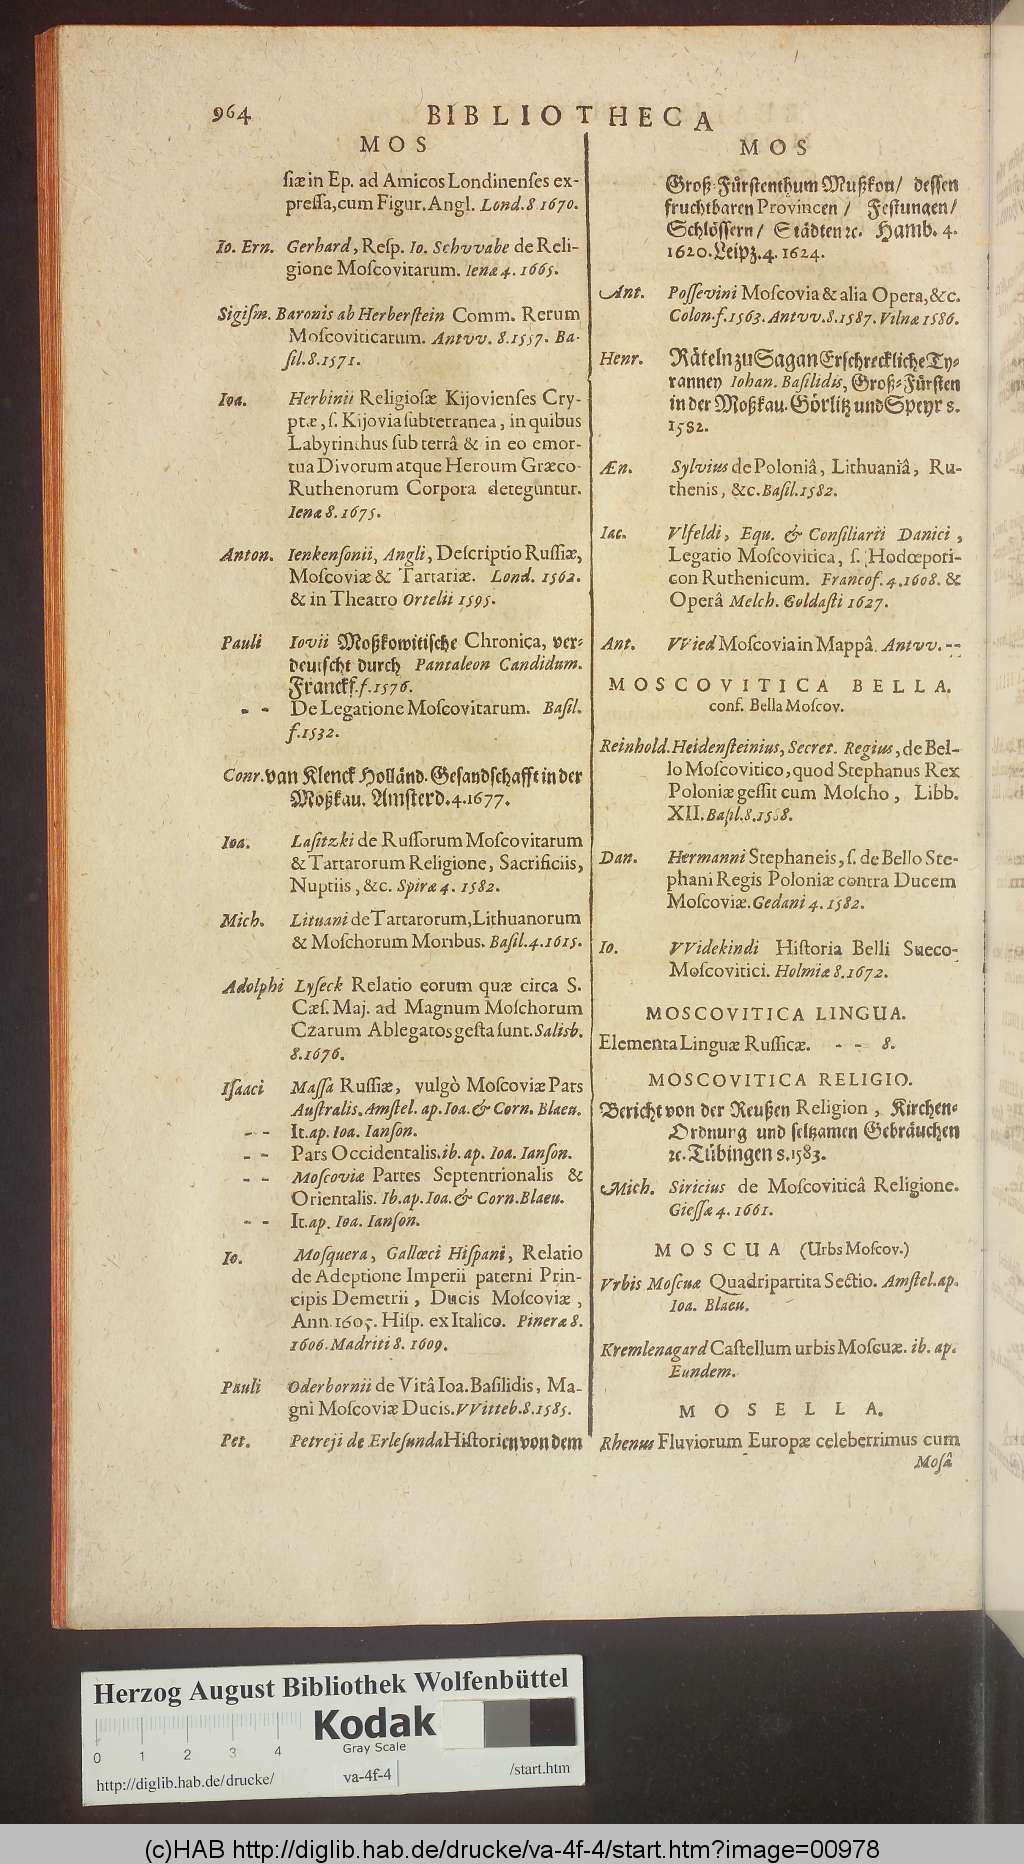 964
BIBLIOTHECA
MOS
siæ in Ep. ad Amicos Londinenses ex-
pressa, cum Figur. Angl. Lond. 8 1670.
Io. Ern. Gerhard, Resp. Io. Schvvabe de Reli-
gione Moscovitarum. Ienæ 4. 1665.
Sigism. Baronis ab Herberstein Comm. Rerum
Moscoviticarum. Antvv. 8. 1557. Ba-
sil. 8. 1571.
Ioa. Herbinii Religiosæ Kijovienses Cry-
ptæ, s. Kijovia subterranea, in quibus
Labyrinthus sub terrâ & in eo emor-
tua Divorum atque Heroum Græco-
Ruthenorum Corpora deteguntur.
Ienæ 8. 1675.
Anton. Ienkensonii, Angli, Descriptio Russiæ,
Moscoviæ & Tartariæ. Lond. 1562.
& in Theatro Ortelii 1595.
Pauli Iovii Moßkowitische Chronica, ver-
deutscht durch Pantaleon Candidum.
Franckf. f. 1576.
- - De Legatione Moscovitarum. Basil.
f. 1532.
Conr. van Klenck Holländ. Gesandschafft in der
Moßkau. Amsterd. 4. 1677.
Ioa. Lasitzki de Russorum Moscovitarum
& Tartarorum Religione, Sacrificiis,
Nuptiis, &c. Spiræ 4. 1582.
Mich. Lituani de Tartarorum, Lithuanorum
& Moschorum Moribus. Basil. 4. 1615.
Adolphi Lyseck Relatio eorum quæ circa S.
Cæs. Maj. ad Magnum Moschorum
Czarum Ablegatos gesta sunt. Salisb.
8. 1676.
Isaaci Massa Russiæ, vulgò Moscoviæ Pars
Australis. Amstel. ap. Ioa. & Corn. Blaeu.
- - It. ap. Ioa. Ianson.
- - Pars Occidentalis. ib. ap. Ioa. Ianson.
- - Moscoviæ Partes Septentrionalis &
Orientalis. Ib. ap. Ioa. & Corn. Blaeu.
- - It. ap. Ioa. Ianson.
Io. Mosquera, Gallœci Hispani, Relatio
de Adeptione Imperii paterni Prin-
cipis Demetrii, Ducis Moscoviæ,
Ann. 1605. Hisp. ex Italico. Pineræ 8.
1606. Madriti 8. 1609.
Pauli Oderbornii de Vitâ Ioa. Basilidis, Ma-
gni Moscoviæ Ducis. VVitteb. 8. 1585.
Pet. Petreji de Erlesunda Historien von dem
MOS
Groß-Fürstenthum Mußkou/ dessen
fruchtbaren Provincen / Festungen/
Schlössern/ Städten ꝛc. Hamb. 4.
1620. Leipz. 4. 1624.
Ant. Possevini Moscovia & alia Opera, &c.
Colon. f. 1563. Antvv. 8. 1587. Vilnæ 1586.
Henr. Räteln zu Sagan Erschreckliche Ty-
ranney Iohan. Basilidis, Groß-Fürsten
in der Moßkau. Görlitz und Speyr 8.
1582.
Æn. Sylvius de Poloniâ, Lithuaniâ, Ru-
thenis, &c. Basil. 1582.
Iac. Vlfeldi, Equ. & Consiliarii Danici,
Legatio Moscovitica, s. Hodœpori-
con Ruthenicum. Francof. 4. 1608. &
Operâ Melch. Goldasti 1627.
Ant. VVied Moscovia in Mappâ. Antvv. --
MOSCOVITICA BELLA.
conf. Bella Moscov.
Reinhold. Heidensteinius, Secret. Regius, de Bel-
lo Moscovitico, quod Stephanus Rex
Poloniæ gessit cum Moscho, Libb.
XII. Basil. 8. 1588.
Dan. Hermanni Stephaneis, s. de Bello Ste-
phani Regis Poloniæ contra Ducem
Moscoviæ. Gedani 4. 1582.
Io. VVidekindi Historia Belli Sueco-
Moscovitici. Holmiæ 8. 1672.
MOSCOVITICA LINGUA.
Elementa Linguæ Russicæ. - - 8.
MOSCOVITICA RELIGIO.
Bericht von der Reußen Religion, Kirchen-
Ordnung und seltzamen Gebräuchen
ꝛc. Tübingen 8. 1583.
Mich. Siricius de Moscoviticâ Religione.
Giessæ 4. 1661.
MOSCUA (Urbs Moscov.)
Vrbis Moscuæ Quadripartita Sectio. Amstel. ap.
Ioa. Blaeu.
Kremlenagard Castellum urbis Moscuæ. ib. ap.
Eundem.
MOSELLA.
Rhenus Fluviorum Europæ celeberrimus cum
Mosâ
Herzog August Bibliothek Wolfenbüttel
Kodak
Gray Scale
0 1 2 3 4
http://diglib.hab.de/drucke/ va-4f-4 /start.htm
(c)HAB http://diglib.hab.de/drucke/va-4f-4/start.htm?image=00978